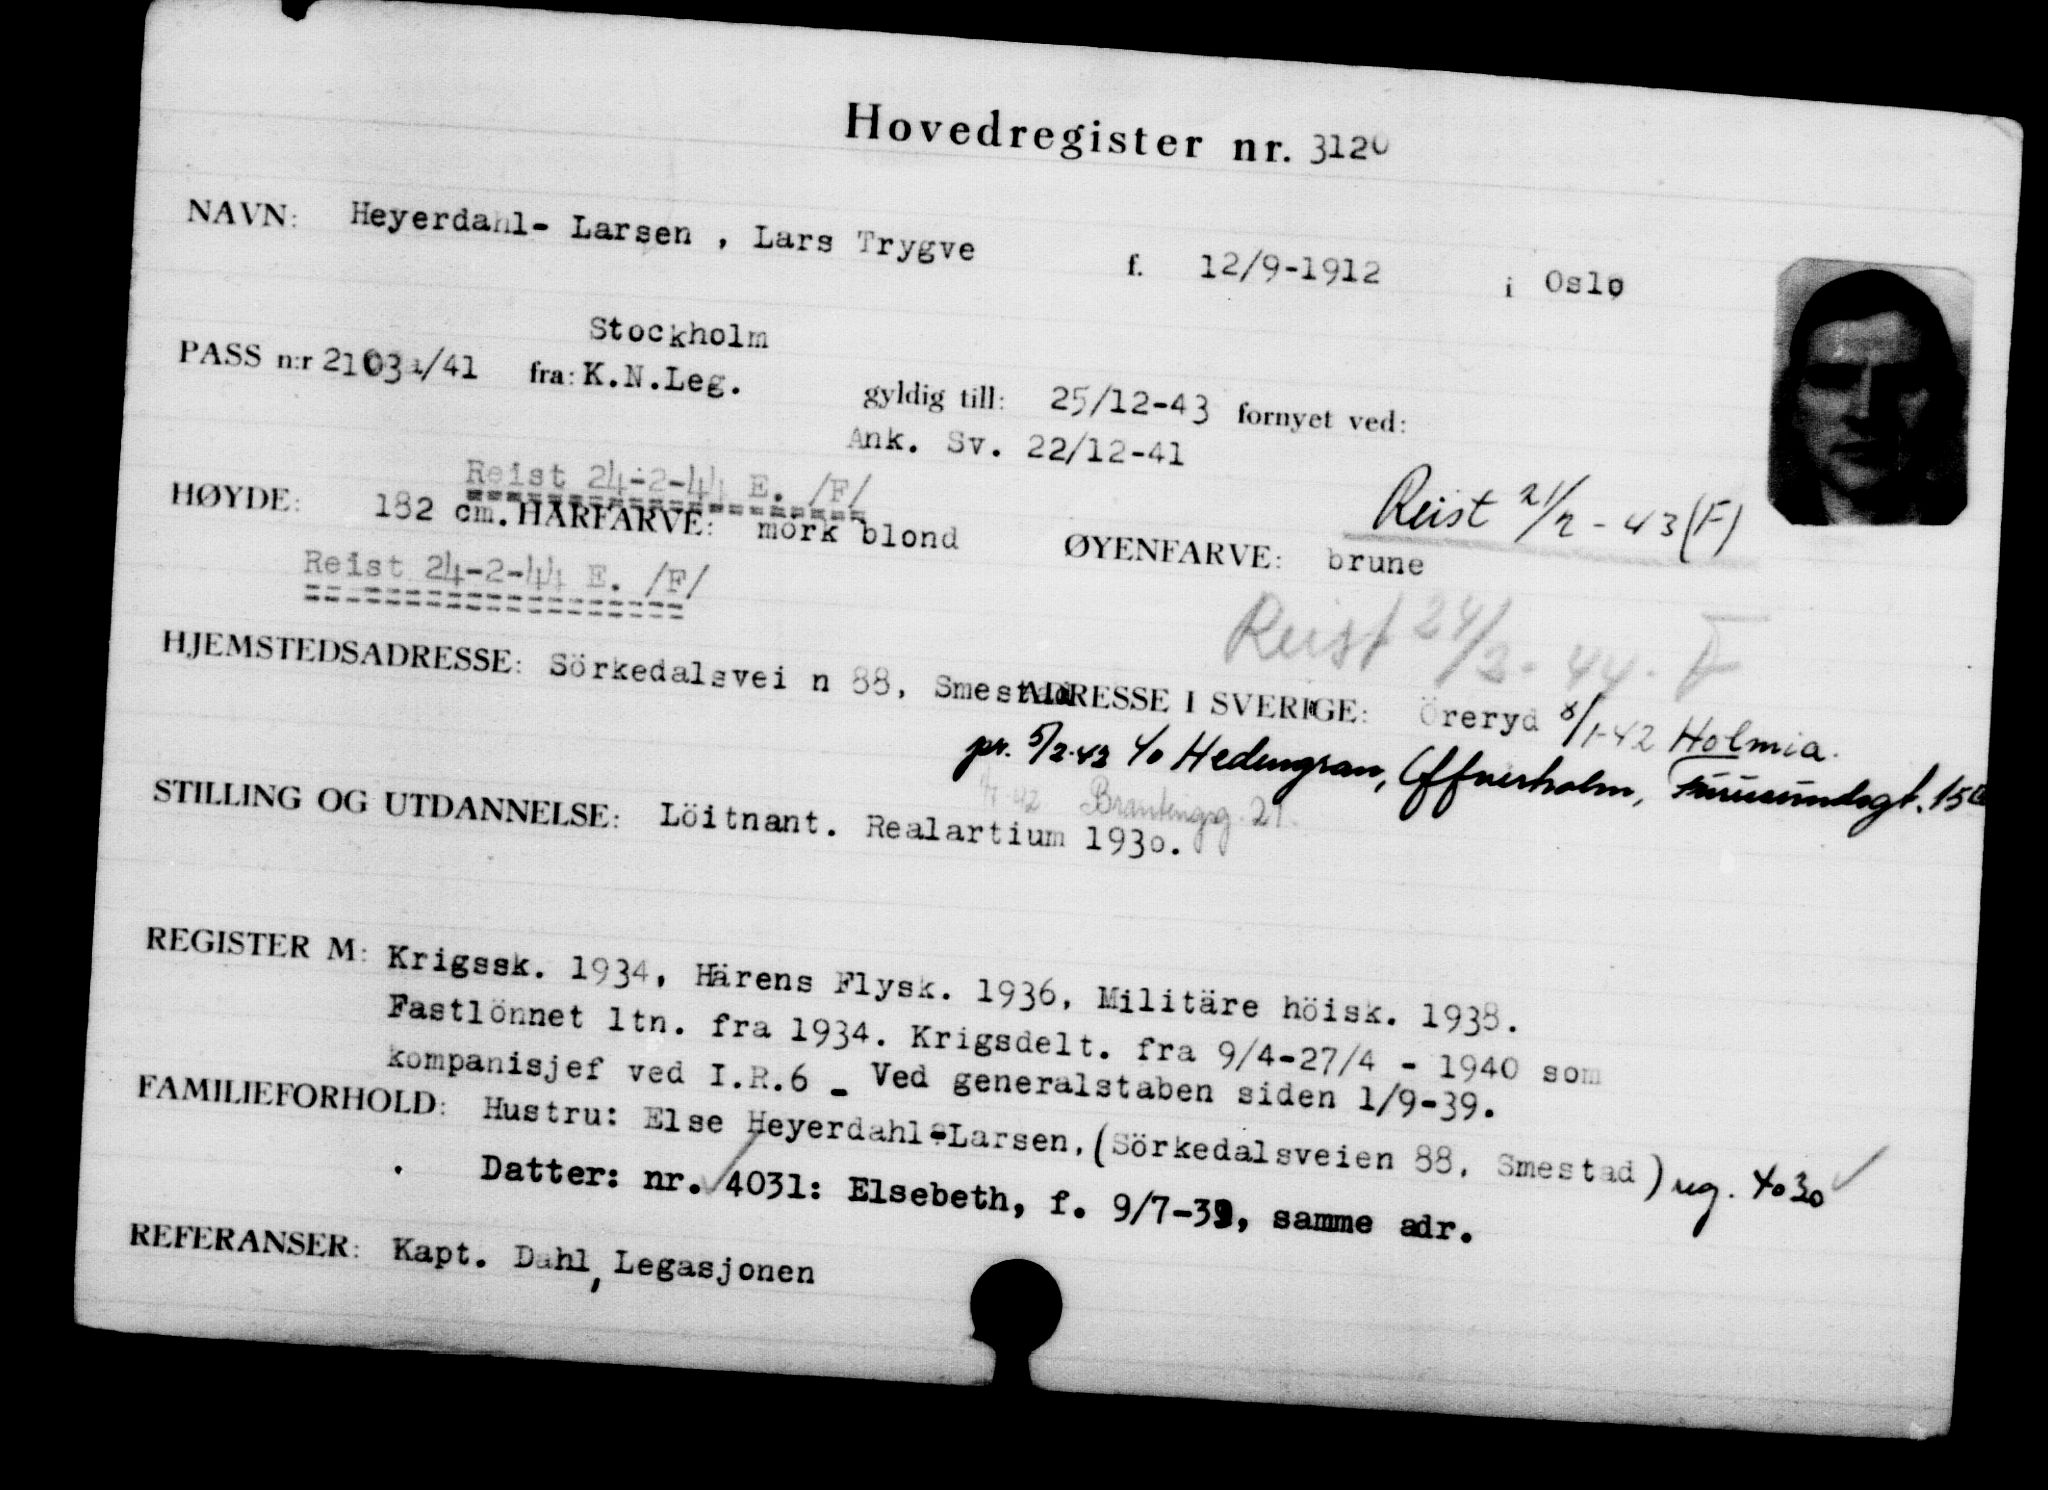 Hovedregister nr. 3120
NAVN: Heyerdahl- Larsen , Lars Trygve f. 12/9-1912 i Oslo
Stockholm
PASS n:r 2103a/41 fra: K.N.Leg. gyldig till: 25/12-43 fornyet ved:
Ank. Sv. 22/12-41
Reist 24-2-44 E. /F/
Reist 21/2 - 43 (F)
HØYDE: 182 cm. HÅRFARVE: mörk blond ØYENFARVE: brune
Reist 24-2-44 E. /F/
Reist 24/2 - 44. F
HJEMSTEDSADRESSE: Sörkedalsvei n 88, Smestad ADRESSE I SVERIGE: Öreryd 8/1-42 Holmia.
pr. 5/2-42 c/o Hedengran, Furusundsgt. 15
42 Brantingsg. 21.
STILLING OG UTDANNELSE: Löitnant. Realartium 1930.
REGISTER M: Krigssk. 1934, Härens Flysk. 1936, Militäre höisk. 1938.
Fastlönnet ltn. fra 1934. Krigsdelt. fra 9/4-27/4 - 1940 som
kompanisjef ved I.R.6 - Ved generalstaben siden 1/9-39.
FAMILIEFORHOLD: Hustru: Else Heyerdahl-Larsen, (Sörkedalsveien 88, Smestad) reg. 4030
Datter: nr. 4031: Elsebeth, f. 9/7-39, samme adr.
REFERANSER: Kapt. Dahl, Legasjonen